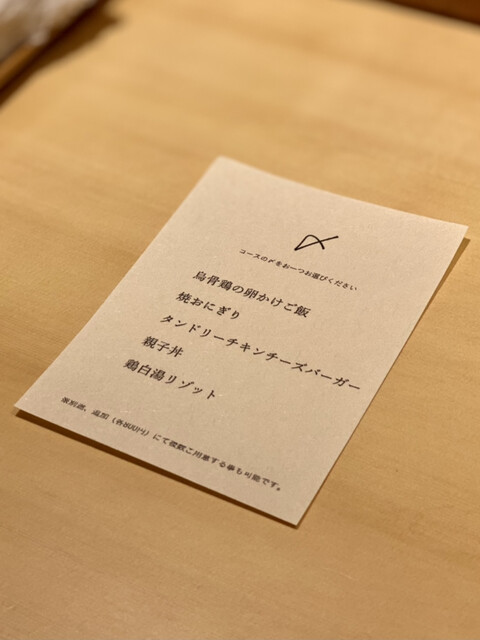 〆
コースの〆をお一つお選びください
烏骨鶏の卵かけご飯
焼おにぎり
タンドリーチキンチーズバーガー
親子丼
鶏白湯リゾット
追加（各800円）にて複数ご用意する事も可能です。